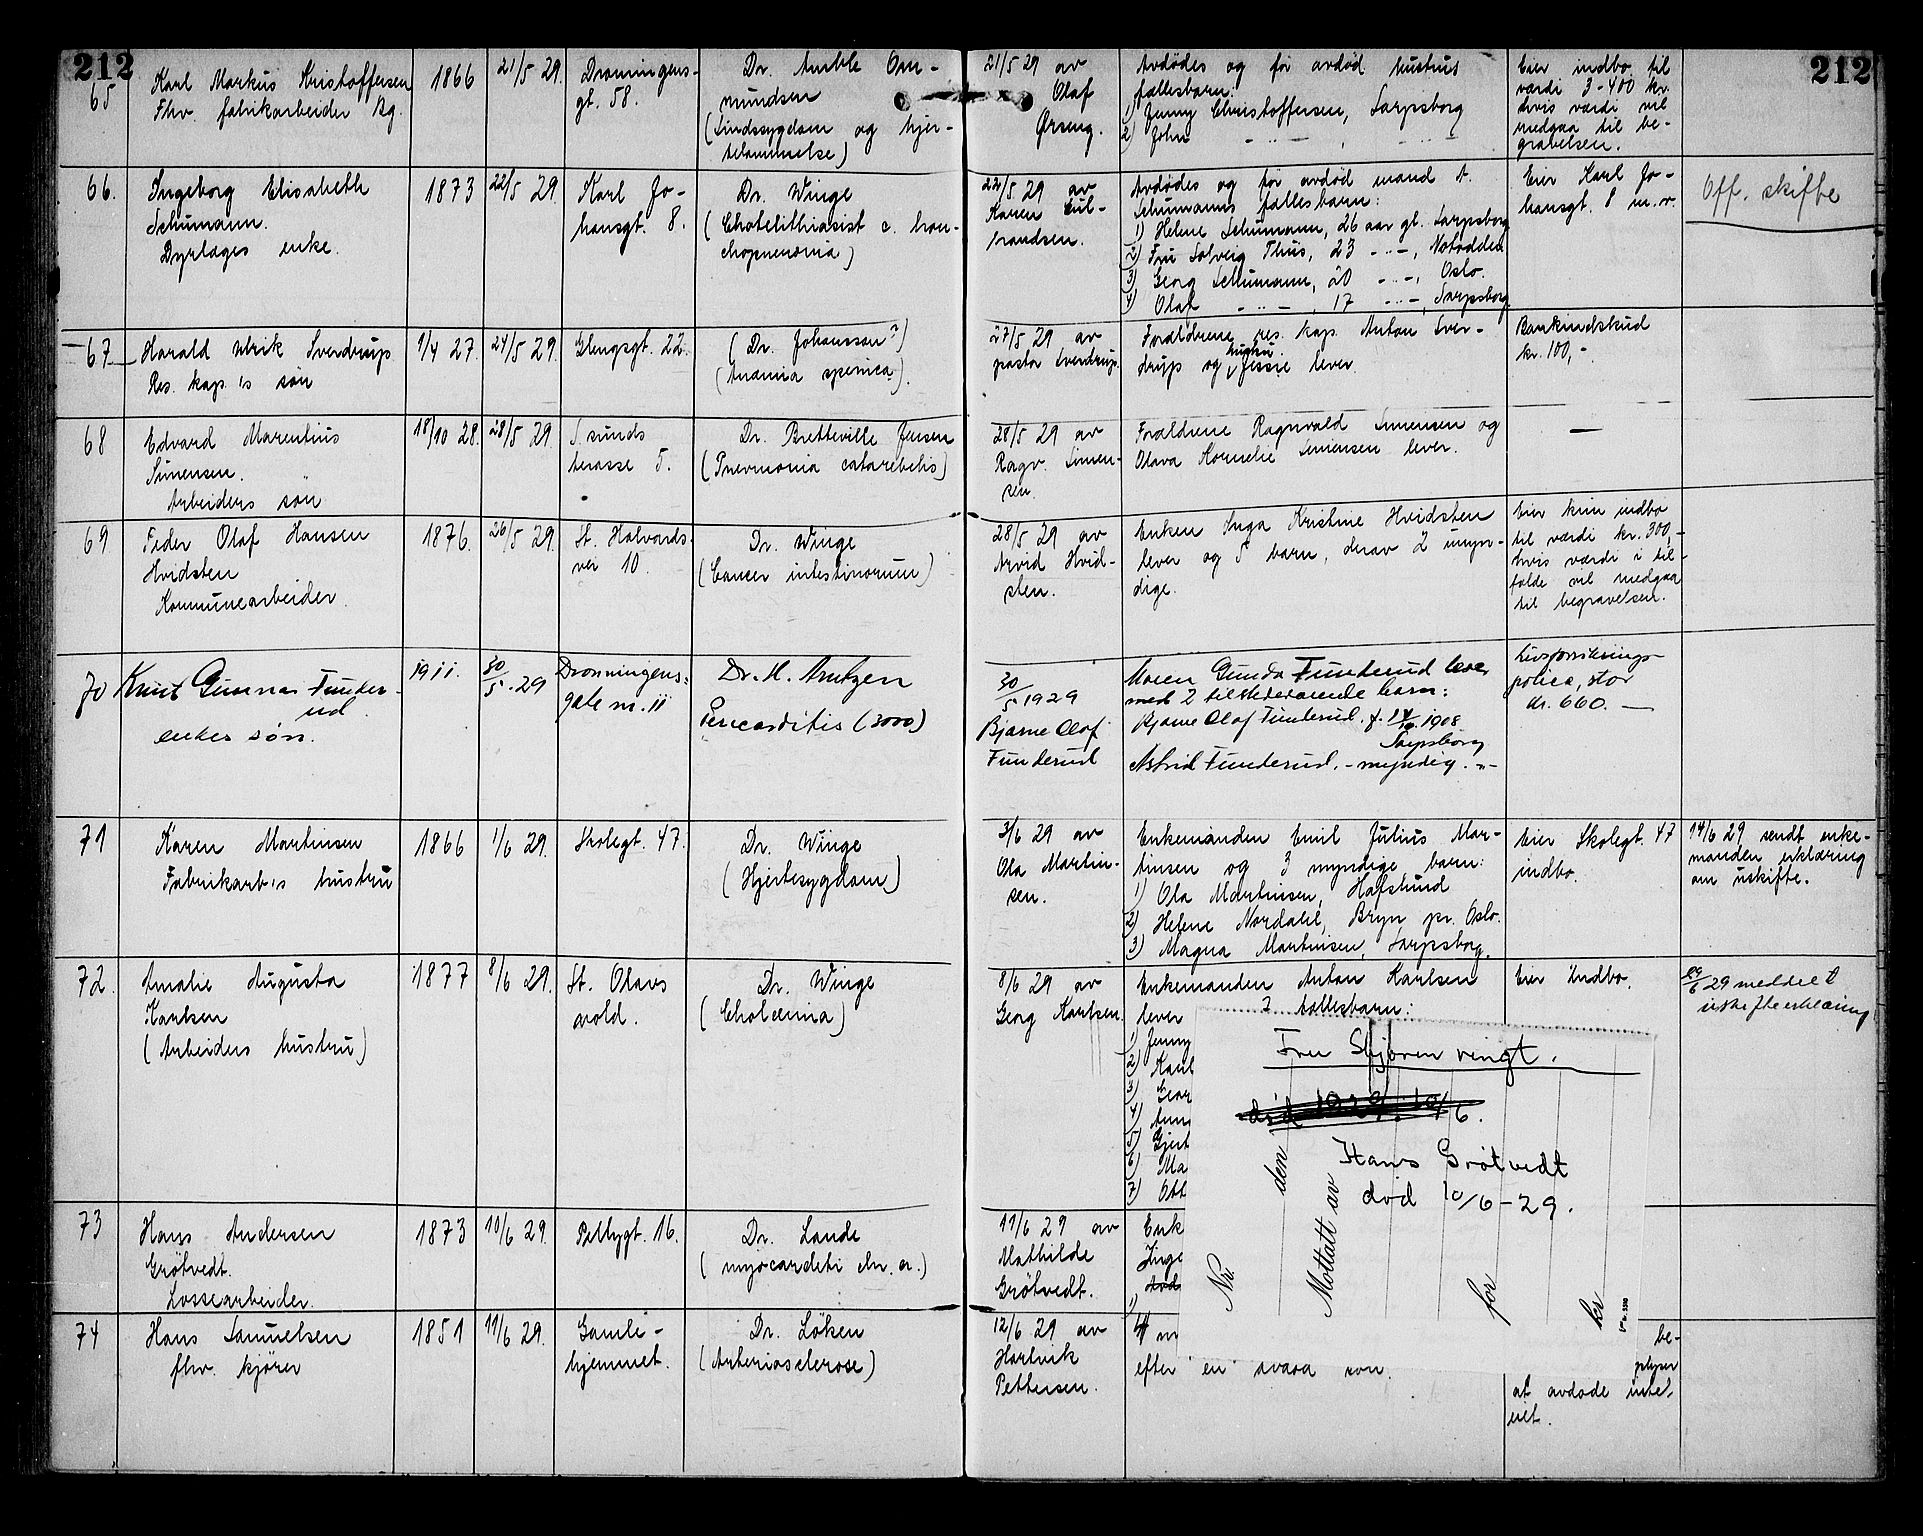 212
212
65
Karl Markus Kristoffersen
Fhv. fabrikarbeider Bg.
1866
21/5 29.
Dronningens-
gt. 58.
Dr. Amble Om-
mundsen
(Sindssygdom og hjer-
telammelse)
21/5 29 av
Olaf
Ørseng.
Avdødes og før avdød hustrus
fællesbarn:
1) Jenny Christoffersen, Sarpsborg
2) John - " - , - " -
Eier indbo til
værdi 3-400 kr.
hvis værdi vil
medgaa til be-
gravelsen.
66.
Ingeborg Elisabeth
Schumann.
Dyrlæges enke.
1873
22/5 29.
Karl Jo-
hansgt. 8.
Dr. Winge
(Cholelithiasist c. bron-
chopneumonia)
22/5 29 av
Karen Gul-
brandsen.
Avdødes og før avdød mand A.
Schumanns fællesbarn:
1) Helene Schumann, 26 aar gl. Sarpsborg
2) Fru Solveig Thus, 23 - " -, Notodden
3) Georg Schumann, 20 - " -, Oslo.
4) Olaf - " -, 17 - " -, Sarpsborg.
Eier Karl Jo-
hansgt. 8 m. v.
Off. skifte
67
Harald Ulrik Sverdrup
Res. kap.'s søn
1/4 27.
24/5 29.
Glengsgt. 22.
(Dr. Johansson?)
(Anæmia spenica).
27/5 29 av
pastor Sverdrup.
Forældrene, res. kap. Anton Sver-
drup og hustru Jessie lever.
Bankindskud
kr. 100,-
68
Edvard Marentius
Simensen.
Arbeiders søn
18/10 28.
28/5 29.
S. sunds
terasse 5.
Dr. Bretteville Jensen
(Pnevmonia catarrhelis)
28/5 29 av
Ragv. Simen-
sen.
Forældrene Ragnvald Simensen og
Olava Kornelie Simensen lever.
—
69
Peder Olaf Hansen
Hvidsten
Kommunearbeider.
1876.
26/5 29.
St. Halvards-
vei 10.
Dr. Winge
(Cancer intestinorum)
28/5 29 av
Arvid Hvid-
sten.
Enken Inga Kristine Hvidsten
lever og 5 barn, derav 2 umyn-
dige.
Eier kun indbo
til værdi kr. 300,-
hvis værdi i til-
fælde vil medgaa
til begravelsen.
70
Knut Gunnar Funder-
ud.
enkes søn.
1911.
30/5. 29
Dronningens-
gate nr. 11
Dr. H. Arntzen
Pericarditis (3000)
30/5 1929
Bjarne Olaf
Funderud
Moren Gunda Funderud lever
med 2 tilstedeværende barn:
Bjarne Olaf Funderud. f. 1908
Sarpsborg
Astrid Funderud. - myndig. - " -
Livsforsikrings-
police, stor
Kr. 660. —
71
Karen Martinsen
Fabrikarb's hustru
1866
1/6 29.
Skolegt. 47.
Dr. Winge
(Hjertesygdom)
3/6 29 av
Ola Martin-
sen.
Enkemanden Emil Julius Mar-
tinsen og 3 myndige barn:
1) Ola Martinsen, Hafslund
2) Helene Nordahl, Bryn pr. Oslo.
3) Magna Martinsen, Sarpsborg.
Eier Skolegt. 47
indbo.
14/6 29 sendt enke-
manden erklæring
om uskifte.
72.
Amalie Augusta
Karlsen
(Arbeiders hustru)
1877
8/6 29.
St. Olavs
vold.
Dr. Winge
(Cholæmia)
8/6 29 av
Georg Karlsen.
Enkemanden Anton Karlsen
lever 7 fællesbarn:
1) Jenny
2) Karl
3) Geor
4) Ann
5) Gjert
6) Ma
7) Ott
Eier Indbo.
29/6 29 meddelt
uskifteerklæring
Fru Skjørenvingt.
død 1929. 10/6.
Hans Grøtvedt
død 10/6 - 29.
Nr.
den
Mottatt av
for
kr
73
Hans Andersen
Grøtvedt.
Lossearbeider.
1873
10/6 29.
Pellygt. 16.
Dr. Lande
(myocarditi chr. a.)
11/6 29 av
Mathilde
Grøtvedt.
Enk
Inge
Avd
1)
74
Hans Samuelsen
fhv. kjører
1851
11/6 29.
Gamle-
hjemmet.
Dr. Løken
(Arteriosclerose)
12/6 29 av
Hartvik
Pettersen.
efter en svaga søn.
be-
at avdøde intet
eiet.